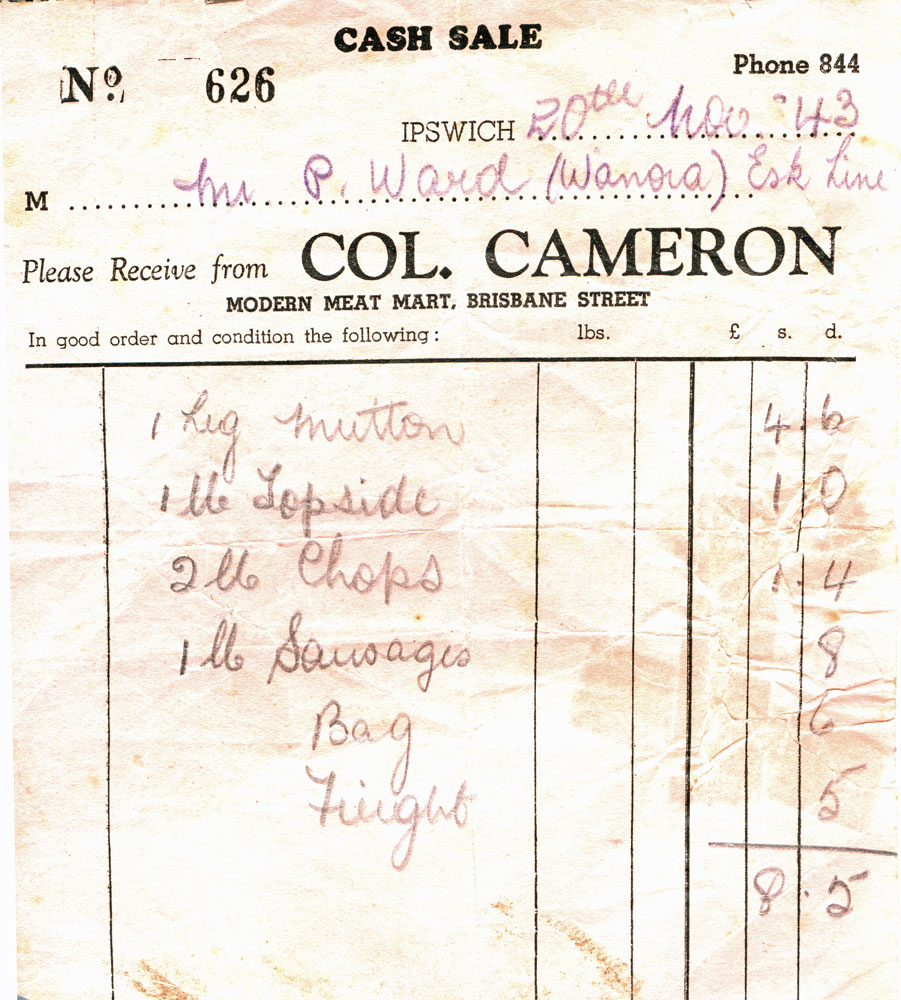 CASH SALE
Nº 626
Phone 844
IPSWICH 20th Nov. '43
M Mr P. Ward (Wanora) Esk Line
Please Receive from COL. CAMERON
MODERN MEAT MART, BRISBANE STREET
In good order and condition the following: lbs. £ s. d.
1 Leg Mutton 4. 6
1 lb Topside 1 0
2 lb Chops 1. 4
1 lb Sausages 8
Bag 6
Freight 5
8. 5